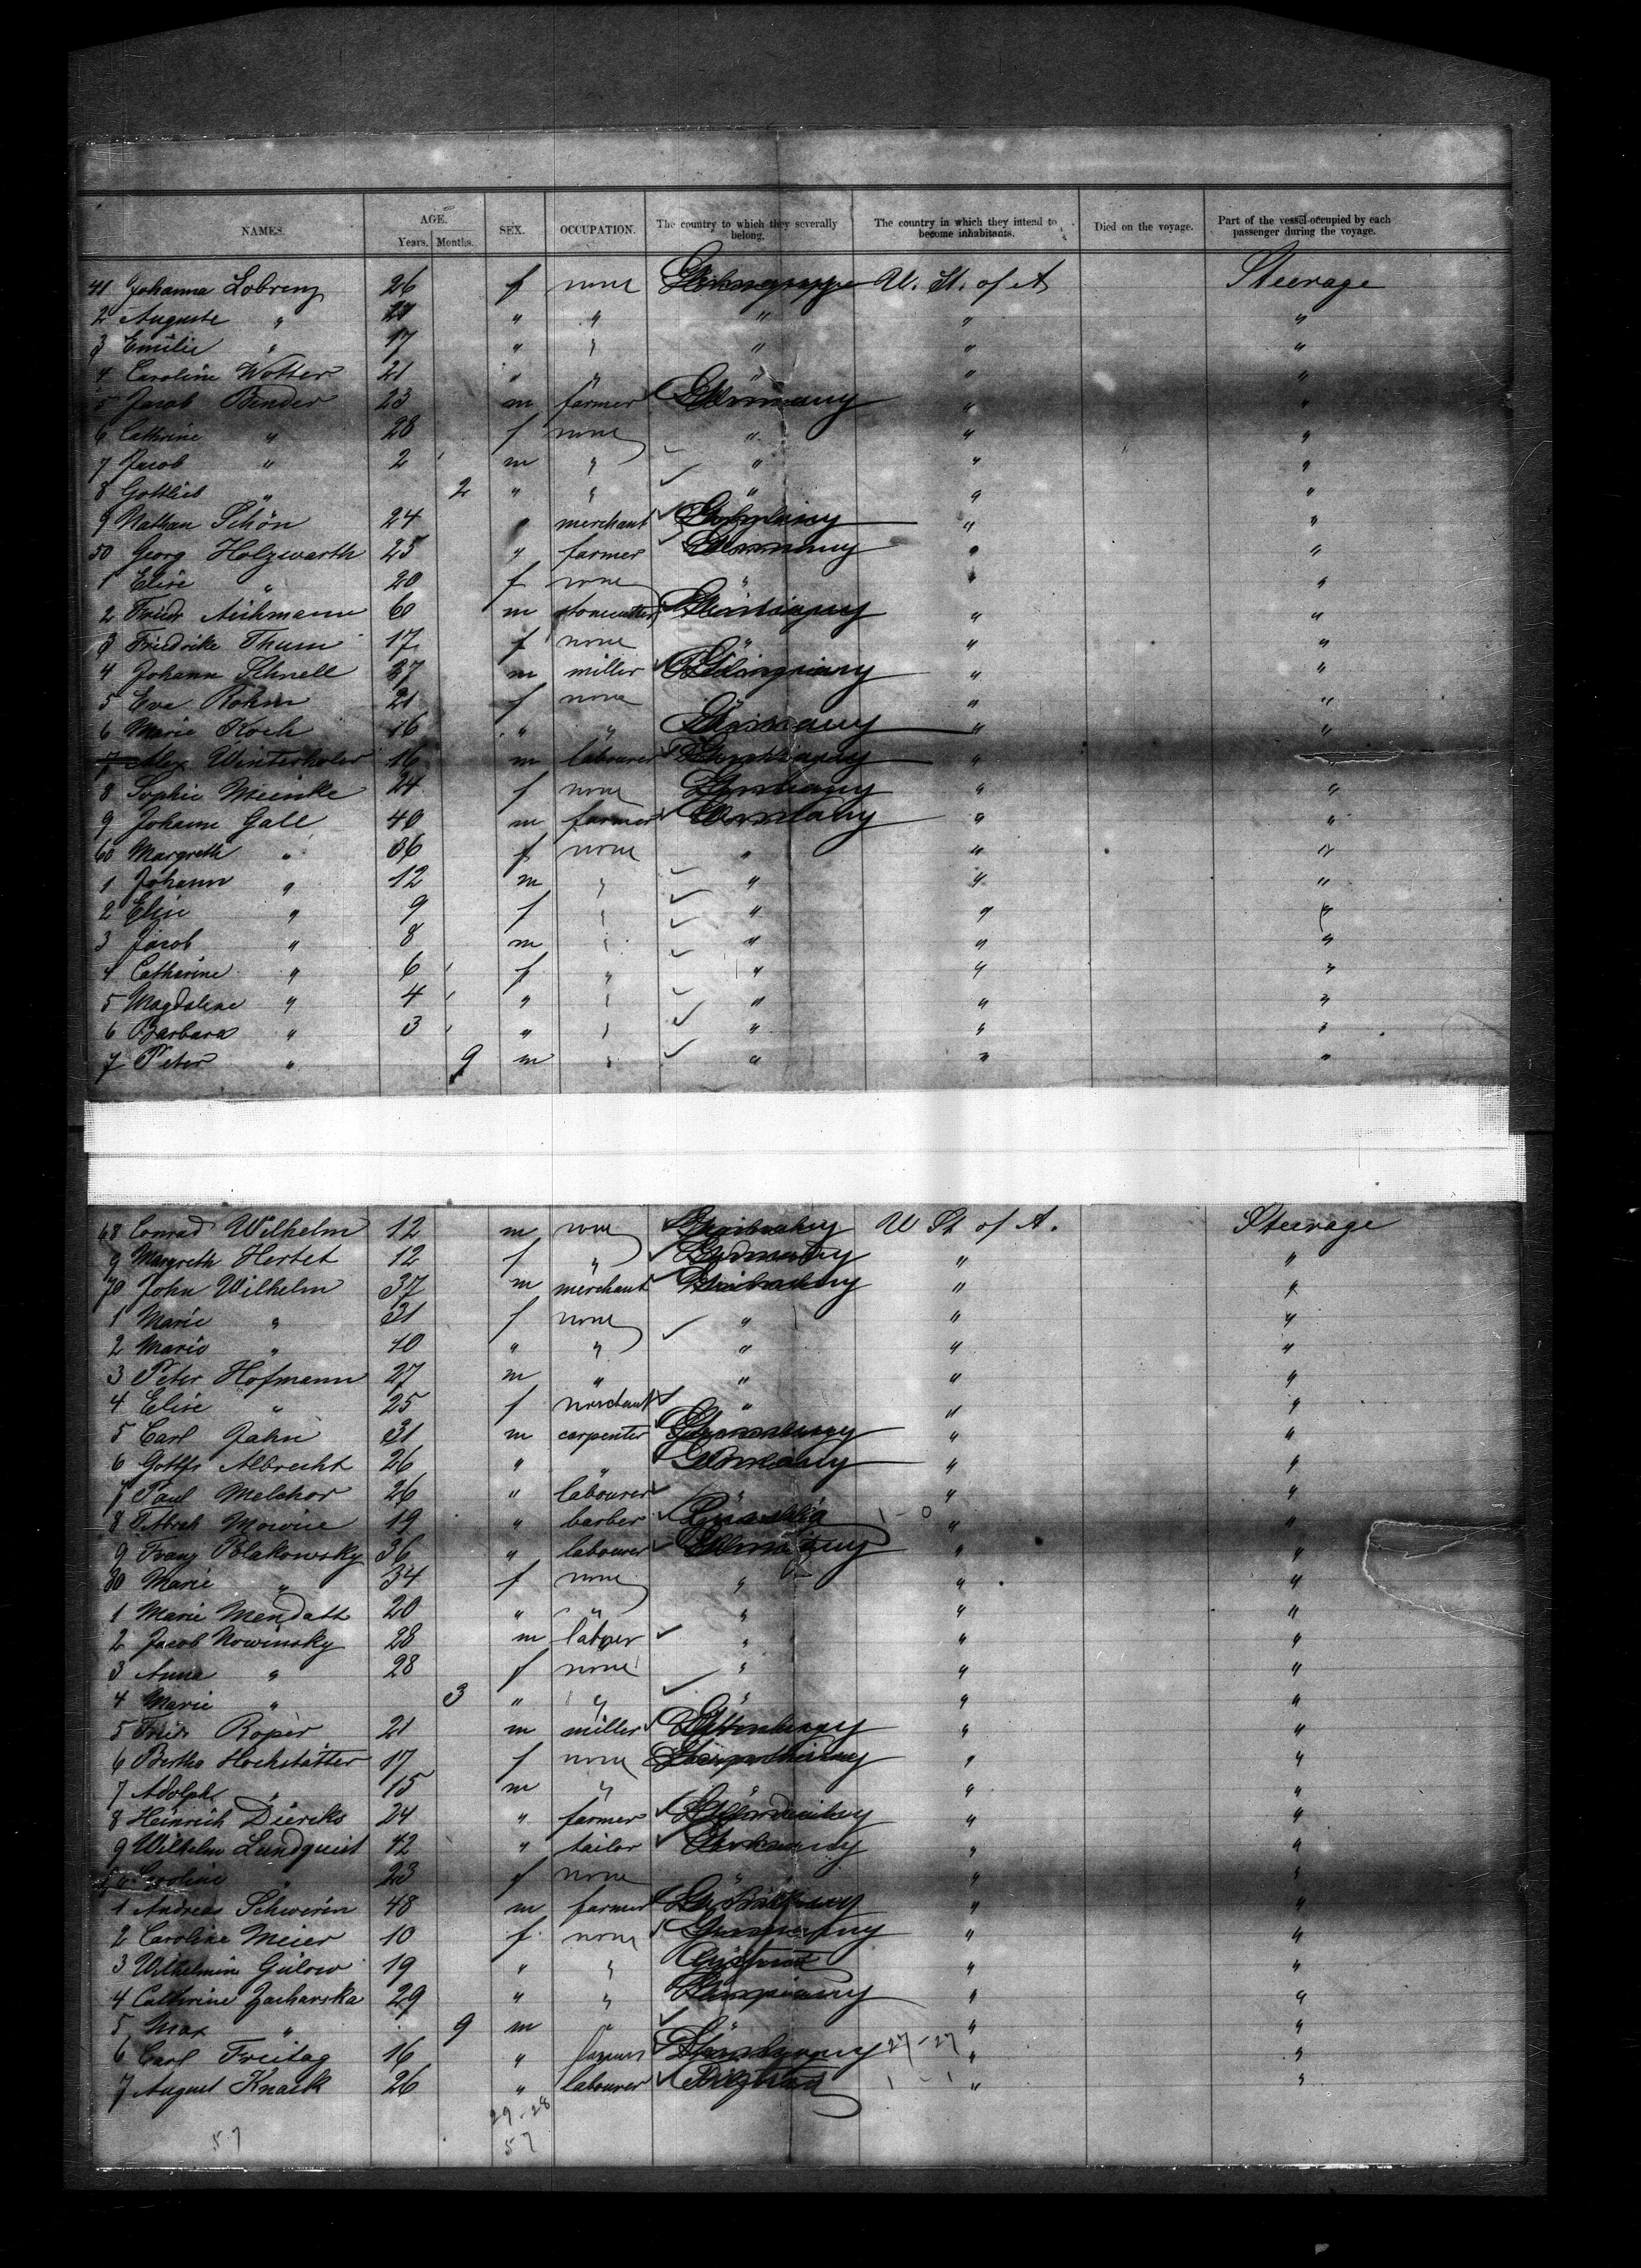 NAMES. AGE. SEX. OCCUPATION. The country to which they severally belong. The country in which they intend to become inhabitants. Died on the voyage. Part of the vessel occupied by each passenger during the voyage.
Years. Months.
41 Johanna Lobrenz 26 f none U. St. of A Steerage
2 Auguste " " " " " "
3 Emilie " 17 " " " " "
4 Caroline Wolter 21 " " " " "
5 Jacob Binder 23 m farmer Germany " "
6 Cathrine " 28 f none " " "
7 Jacob " 2 m " " " "
8 Gottlieb " 2 " " " " "
9 Nathan Schön 24 " merchant Germany " "
50 Georg Holzwarth 25 " farmer Germany " "
1 Elise " 20 f none " " "
2 Friedr Aichmann 60 m stonecutter Germany " "
3 Friedrike Thum 17 f none " " "
4 Johann Schnell 37 m miller " "
5 Eva Rohm 21 f none " " "
6 Marie Koch 16 " " Germany " "
7 Alex Winterholer 16 m labourer Germany "
8 Sophie Meinke 24 f none Germany " "
9 Johann Gall 40 m farmer Germany " "
60 Margreth " 36 f none " " "
1 Johann " 12 m " " " "
2 Elise " 9 f " " " "
3 Jacob " 8 m " " " "
4 Catharine " 6 f " " " "
5 Magdalene " 4 " " " " "
6 Barbara " 3 " " " " "
7 Peter " 9 m " " " "
68 Conrad Wilhelm 12 m none Germany U St of A. Steerage
9 Margreth Hertel 12 f " Germany " "
70 John Wilhelm 37 m merchant Germany " "
1 Marie " 31 f none " " "
2 Marie " 10 " " " " "
3 Peter Hofmann 27 m " " " "
4 Elise " 25 f merchant " " "
5 Carl Jahn 31 m carpenter Germany " "
6 Gottfr Albrecht 26 " " Germany " "
7 Paul Melchor 26 " labourer " " "
8 Mowice 19 " barber 1 - 0 " "
9 Franz Polakowsky 36 " labourer Germany " "
80 Marie " 34 f none " " "
1 Marie Mendatt 20 " " " " "
2 Jacob Nowinsky 28 m " " "
3 Anna " 28 f none " " "
4 Marie " 3 " " " " "
5 Friedr Roper 21 m miller Germany " "
6 Bertha Hochstätter 17 f none Germany " "
7 Adolph " 15 m " " " "
8 Heinrich Dierks 24 " farmer " "
9 Wilhelm Lundquist 42 " tailor Germany " "
Caroline " 23 f none " " "
1 Andreas Schwerin 48 m farmer Germany " "
2 Caroline Meier 10 f none Germany " "
3 Wilhelmine Gülow 19 " " " "
4 Cathrine Zacharska 29 " " Germany " "
5 Max " 9 m " " " "
6 Carl Freitag 16 " farmer Germany 27 - 27 " "
7 August Knaek 26 " labourer 1 - 1 " "
29 - 28
57 57